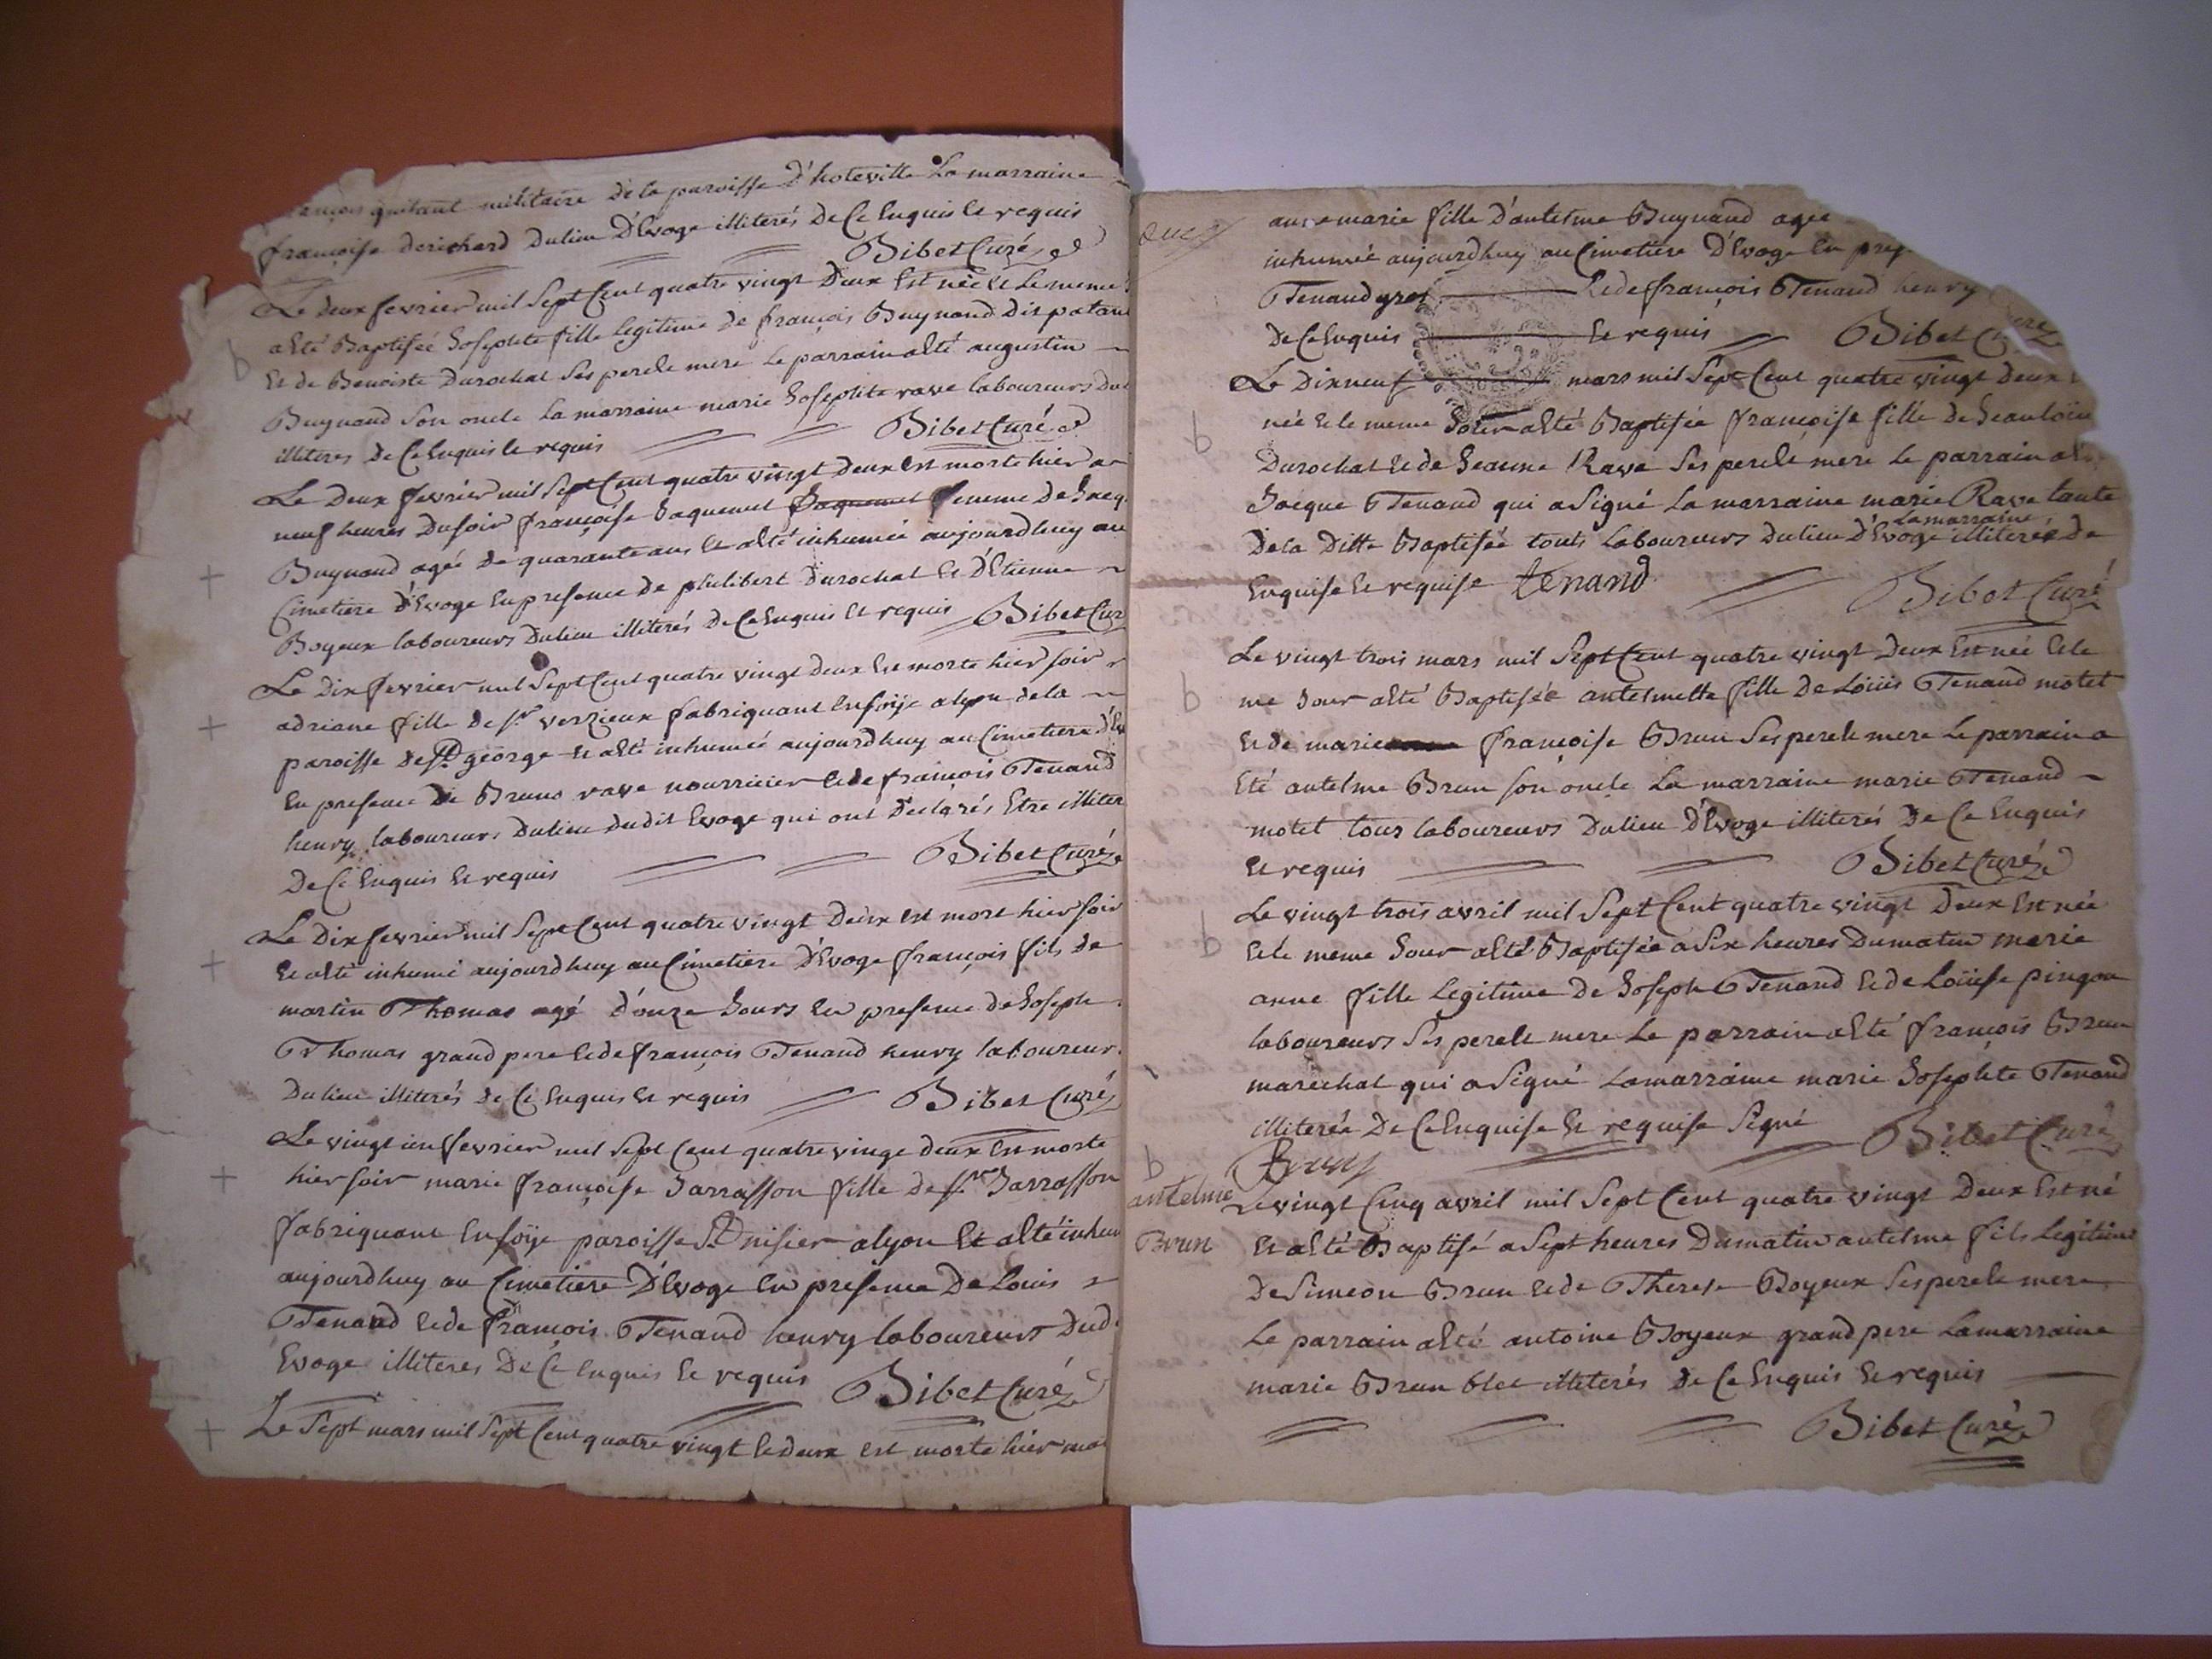 françois guitant militaire de la paroisse D'hoteville La marraine
françoise derichard Du lieu D'Evoge illiterés De Ce Enquis Et requis
Bibet Curé
Le deux fevrier mil Sept Cent quatre vingt Deux Est née Et Le meme
b
a Eté Baptisée Josephte fille legitime de françois Buynand dis patau
Et de Benoiste Durochat Ses pere Et mere Le parrain a Eté augustin
Buynand Son oncle La marraine marie Josephte rave laboureurs Du
illiteres De Ce Enquis Et requis Bibet Curé
Le Deux fevrier mil Sept Cent quatre vingt deux Est morte hier a
neuf heures Du soir françoise Jaquemet Jaquemet femme De Jacq
+ Buynand agée de quarante ans Et a Eté inhumée aujourdhuy au
Cimetiere d'Evoge En presence de philibert Durochat Et D'Etienne
Boyeux laboureurs Du lieu illiterés De Ce Enquis Et requis Bibet Cur
Le Dix fevrier mil Sept Cent quatre vingt deux Est morte hier soir
+ adriane fille de sr verzieux fabriquant En soÿe a lyon de la
paroisse de St george Et a Eté inhumée aujourdhuy au Cimetiere d'Ev
En presence De Bruno rave nourricier Et de françois Tenand
henry laboureurs Du lieu dudit Evoge qui ont Declarés Etre illiter
De Ce Enquis Et requis Bibet Curé
Le Dix fevrier mil Sept Cent quatre vingt Deux Est mort hier soir
+ Et a Eté inhumé aujourdhuy au Cimetiere D'Evoge françois fils de
martin Thomas agé d'onze Jours En presence de Joseph
Thomas grand pere Et de françois Tenand henry laboureur
Du lieu illiterés de Ce Enquis Et requis Bibet Curé
Le vingt un fevrier mil Sept Cent quatre vingt deux Est morte
+ hier soir marie françoise Jarrasson fille de sr Jarrasson
fabriquant En soÿe paroisse St nisier a lyon Et a Eté inhum
aujourdhuy au Cimetiere D'Evoge En presence De Louis
Tenand Et de françois Tenand henry laboureurs Dud
Evoge illiteres De Ce Enquis Et requis Bibet Curé
+ Le Sept mars mil Sept Cent quatre vingt Et deux est morte hier mat
anne marie fille D'antelme Buynand agée
inhumée aujourdhuy au Cimetiere D'Evoge En pres
Tenand gros Et de françois Tenand henry
de Ce Enquis Et requis Bibet Curé
Le Dix neuf mars mil Sept Cent quatre vingt deux
b née Et le meme Jour a Eté Baptisée françoise fille de Jean louis
Durochat Et de Jeanne Rave Ses pere Et mere Le parrain a Et
Jacque Tenand qui a Signé La marraine marie Rave tante
La marraine
De la Ditte Baptisée touts Laboureurs Du lieu D'Evoge illiterée De
Enquise Et requise tenand Bibet Curé
Le vingt trois mars mil Sept Cent quatre vingt Deux Est née Et le
b me Jour a Eté Baptisée antelmette fille De Loüis Tenand motet
Et de marie françoise Brun Ses pere Et mere Le parrain a
Eté antelme Brun Son oncle La marraine marie Tenand
motet tous laboureurs Du lieu D'Evoge illiterés De Ce Enquis
Et requis Bibet Curé
Le vingt trois avril mil Sept Cent quatre vingt Deux Est née
b Et le meme Jour a Eté Baptisée a Six heures Du matin marie
anne fille Legitime De Joseph Tenand Et de Loüise pingon
laboureurs Ses pere Et mere Le parrain a Eté françois Brun
marechal qui a Signé La marraine marie Josephte Tenand
illiterée De Ce Enquise Et requise Signé Bibet Curé
b Brun
antelme Le vingt Cinq avril mil Sept Cent quatre vingt Deux Est né
Brun Et a Eté Baptisé a Sept heures Du matin antelme fils Legitime
De Simeon Brun Et de Therese Boyeux Ses pere Et mere
Le parrain a Eté antoine Boyeux grand pere La marraine
marie Brun blet illiterés De Ce Enquis Et requis
Bibet Curé